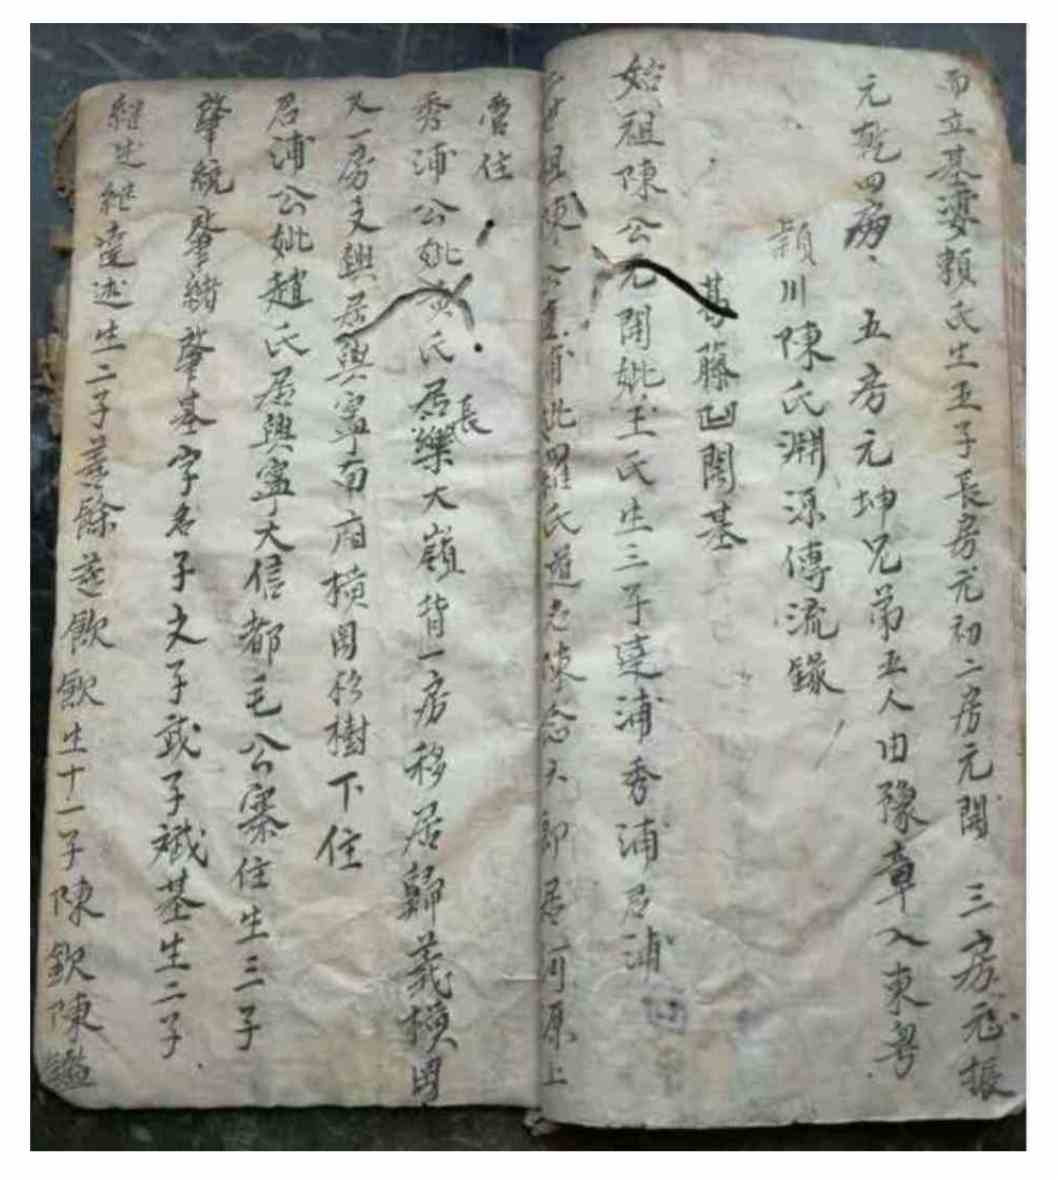 而立基婆賴氏生五子長房元初二房元開 三房元振
元乾四房 五房元坤兄弟五人由豫章入東粤
穎川陳氏淵源傳流錄
葛藤凹開基
始祖陳公元開妣王氏生三子達浦秀浦居浦
世祖陳公達浦妣羅氏 陳念六郎居河原上
營住
秀浦公妣黄氏居樂大嶺背一房移居歸善橫岡
長
又一房文興居興寧南廂橫岡杉樹下住
居浦公妣趙氏居興寧大信都毛公寨住生三子
肇統肇緒肇基字名子文子武子斌基生二子
継述継達述生二子 餘 飲飲生十一子陳欽陳鑑